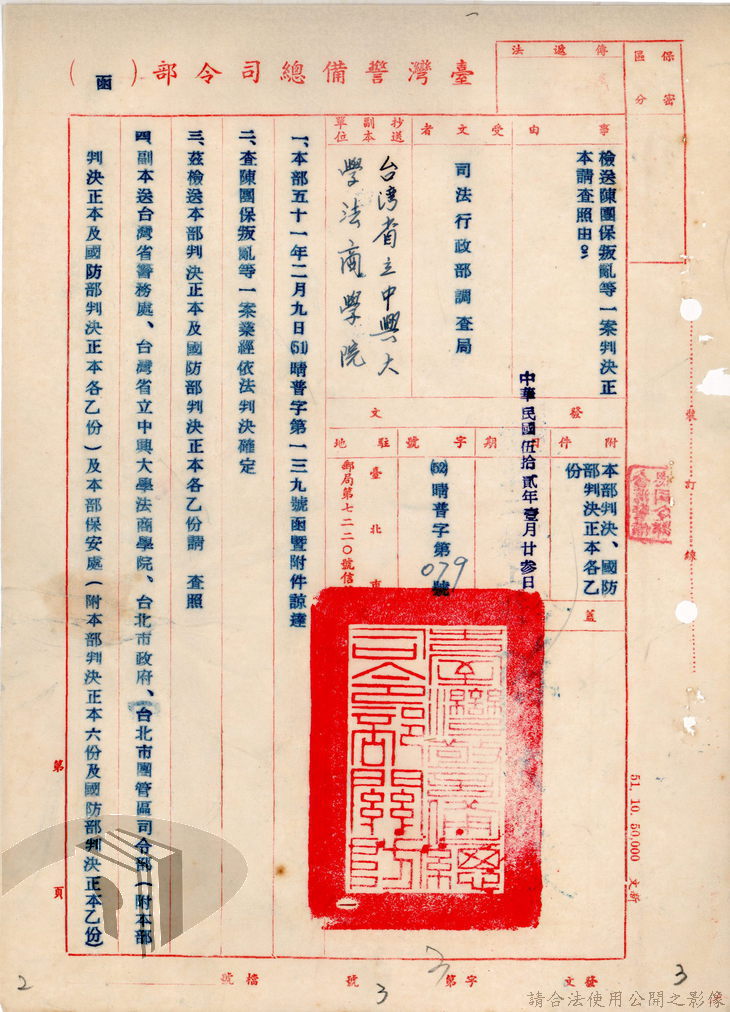 臺灣警備總司令部(函)
保密區分
傳遞法
事由
檢送陳團保叛亂等一案判決正本請查照由。
受文者
司法行政部調查局
抄送副本單位
台灣省立中興大
學法商學院
附件
本部判決、國防部判決正本各乙份
發文
日期
中華民國伍拾貳年壹月廿叁日
字號
(52)晴普字第079號
駐地
臺北市
郵局第七二二〇號信
蓋
一、本部五十一年二月九日(51)晴普字第一三九號函暨附件諒達
二、查陳團保叛亂等一案業經依法判決確定
三、茲檢送本部判決正本及國防部判決正本各乙份請 查照
四、副本送台灣省警務處、台灣省立中興大學法商學院、台北市政府、台北市團管區司令部(附本部
判決正本及國防部判決正本各乙份)及本部保安處(附本部判決正本六份及國防部判決正本乙份)
臺灣警備總
司令部關防
裝訂線
51. 10. 50,000
第 頁
發文 字第 號 檔號
2
3
3
請合法使用公開之影像